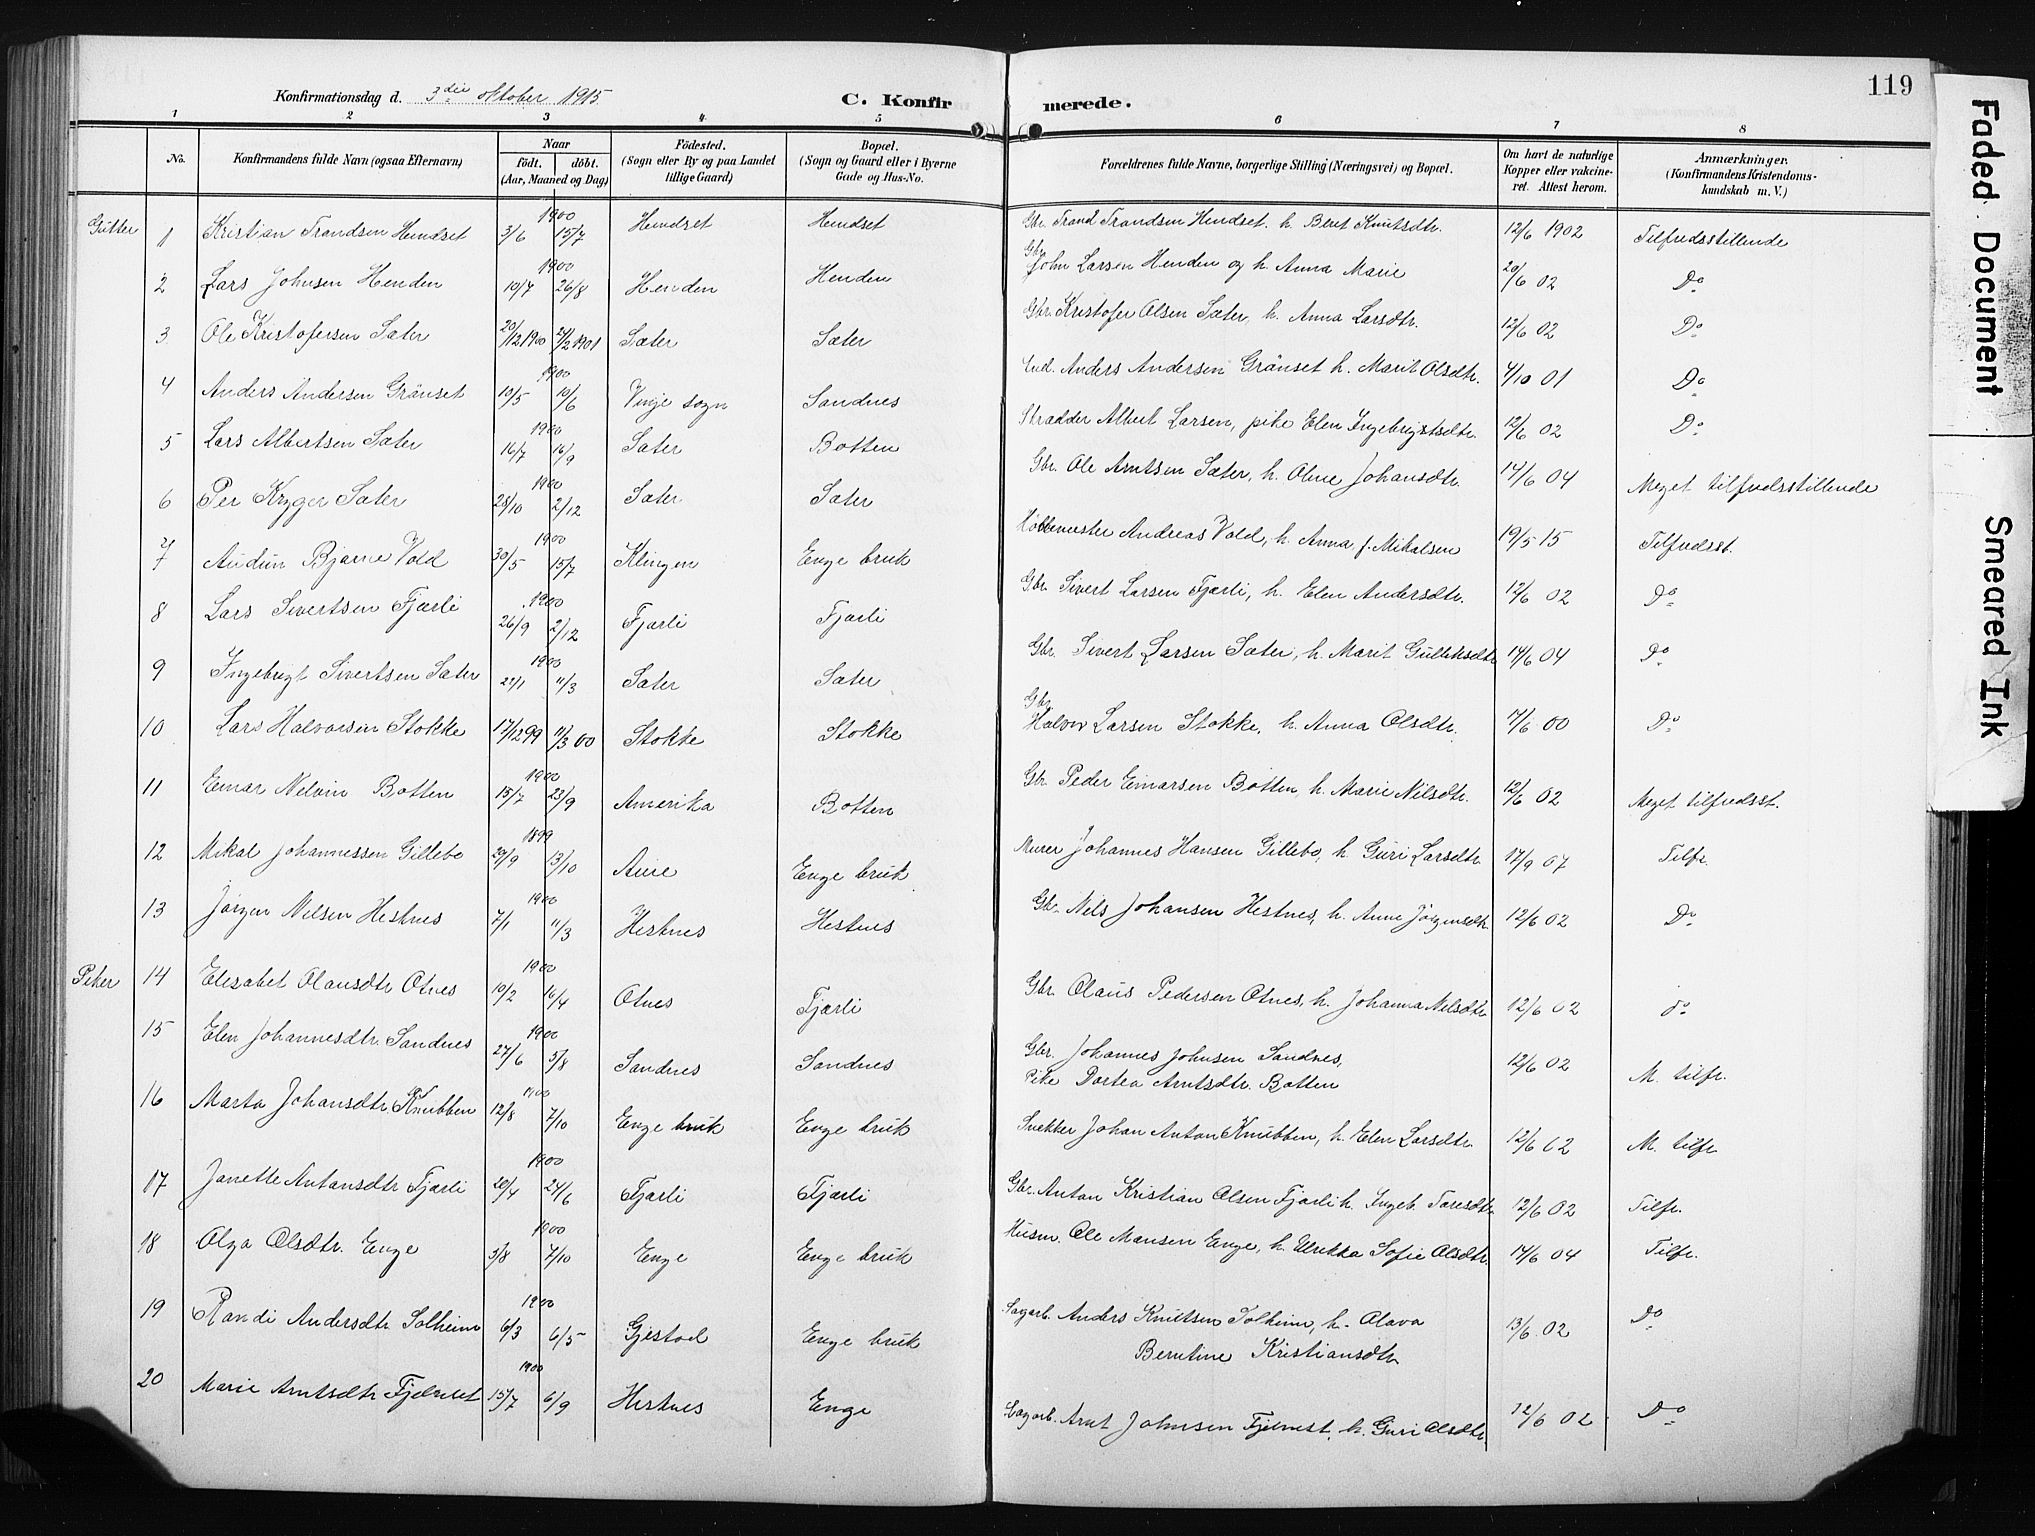 Konfirmationsdag d. 3die oktober 1915. C. Konfirmerede. 119
1 2 3 4 5 6 7 8
No. Konfirmandens fulde Navn (ogsaa Efternavn) Naar født. døbt. (Aar, Maaned og Dag) Fødested. (Sogn eller By og paa Landet tillige Gaard) Bopæl. (Sogn og Gaard eller i Byerne Gade og Hus-No. Forældrenes fulde Navne, borgerlige Stilling (Næringsvei) og Bopæl. Om havt de naturlige Kopper eller vakcineret. Attest herom. Anmærkninger. (Konfirmandens Kristendomskundskab m. V.)
Gutter 1 Kristian Trondsen Hendset 1900 3/6 15/7 Hendset Hendset Gbr. Trond Trondsen Hendset. h. Beret Knutsdtr. 12/6 1902 Tilfredsstillende
2 Lars Johnsen Henden 1900 10/7 26/8 Henden Henden Gbr. John Larsen Henden og h. Anna Marie 20/6 02 Do
3 Ole Kristofersen Sæter 20/12 1900 24/2 1901 Sæter Sæter Gbr. Kristofer Olsen Sæter, h. Anna Larsdtr. 12/6 02 Do
4 Anders Andersen Grönset 1900 10/5 10/6 Vinje sogn Sandnes Ind. Anders Andersen Grönset h. Marit Olsdtr. 4/10 01 Do
5 Lars Albertsen Sæter 1900 16/7 16/9 Sæter Botten Skrædder Albert Larsen, pike Elen Ingebrigtsdtr. 12/6 02 Do
6 Per Kryger Sæter 1900 28/10 2/12 Sæter Sæter Gbr. Ole Arntsen Sæter, h. Oline Johansdtr. 14/6 04 Meget tilfredsstillende
7 Audun Bjarne Vold 1900 30/5 15/7 Klingen Enge bruk Andreas Vold, h. Anna f. Mikalsen 19/5 15 Tilfredsst.
8 Lars Sivertsen Fjærli 1900 26/9 2/12 Fjærli Fjærli Gbr. Sivert Larsen Fjærli, h. Elen Andersdtr. 12/6 02 Do
9 Ingebrigt Sivertsen Sæter 1900 11/3 Sæter Sæter Gbr. Sivert Larsen Sæter, h. Marit Gulleksdtr 14/6 04 Do
10 Lars Halvorsen Stokke 17/12 99 11/3 00 Stokke Stokke Gbr. Halvor Larsen Stokke, h. Anna Olsdtr. 7/6 00 Do
11 Einar Nelvin Botten 1900 15/7 23/9 Amerika Botten Gbr. Peder Einarsen Botten, h. Marie Nilsdtr. 12/6 02 Meget tilfredsst.
12 Mikal Johannessen Gillebo 1899 13/10 Aure Enge bruk Murer Johannes Hansen Gillebo, h. Guri Larsdtr. 17/9 07 Tilfr.
13 Jörgen Nilsen Hestnes 1900 7/1 11/3 Hestnes Hestnes Gbr. Nils Johansen Hestnes, h. Anne Jörgensdtr. 12/6 02 Do
Piker 14 Elesabet Olausdtr Otnes 1900 10/2 16/4 Otnes Fjærli Gbr. Olaus Pedersen Otnes, h. Johanna Nilsdtr 12/6 02 do
15 Elen Johannesdtr. Sandnes 1900 27/6 5/8 Sandnes Sandnes Gbr. Johannes Johnsen Sandnes,
Pike Dortea Arntsdtr. Botten 12/6 02 M. tilfr.
16 Marta Johansdtr. Knubben 1900 12/8 7/10 Enge bruk Enge bruk Snekker Johan Anton Knubben, h. Elen Larsdtr. 12/6 02 M. tilfr.
17 Janette Antonsdtr Fjærli 1900 20/4 24/6 Fjærli Fjærli Gbr. Anton Kristian Olsen Fjærli h. Ingeb. Toresdtr. 12/6 02 Tilfr.
18 Olga Olsdtr. Enge 1900 3/8 7/10 Enge Enge bruk Husm. Ole Monsen Enge, h. Ulrikka Sofie Olsdtr. 14/6 04 Tilfr.
19 Randi Andersdtr Solheim 1900 6/3 6/5 Gjestad Enge bruk Sagarb. Anders Knutsen Solheim, h. Olava
Berntine Kristiansdtr 13/6 02 Do
20 Marie Arntsdtr Fjelnset 1900 15/7 6/9 Hestnes Enge Sagarb. Arnt Johnsen Fjelnset, h. Guri Olsdtr. 12/6 02 Do
Faded Document
Smeared Ink